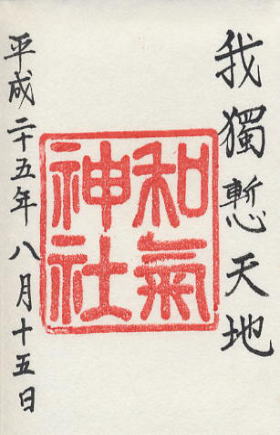 我獨慙天地
和氣
神社
平成二十五年八月十五日